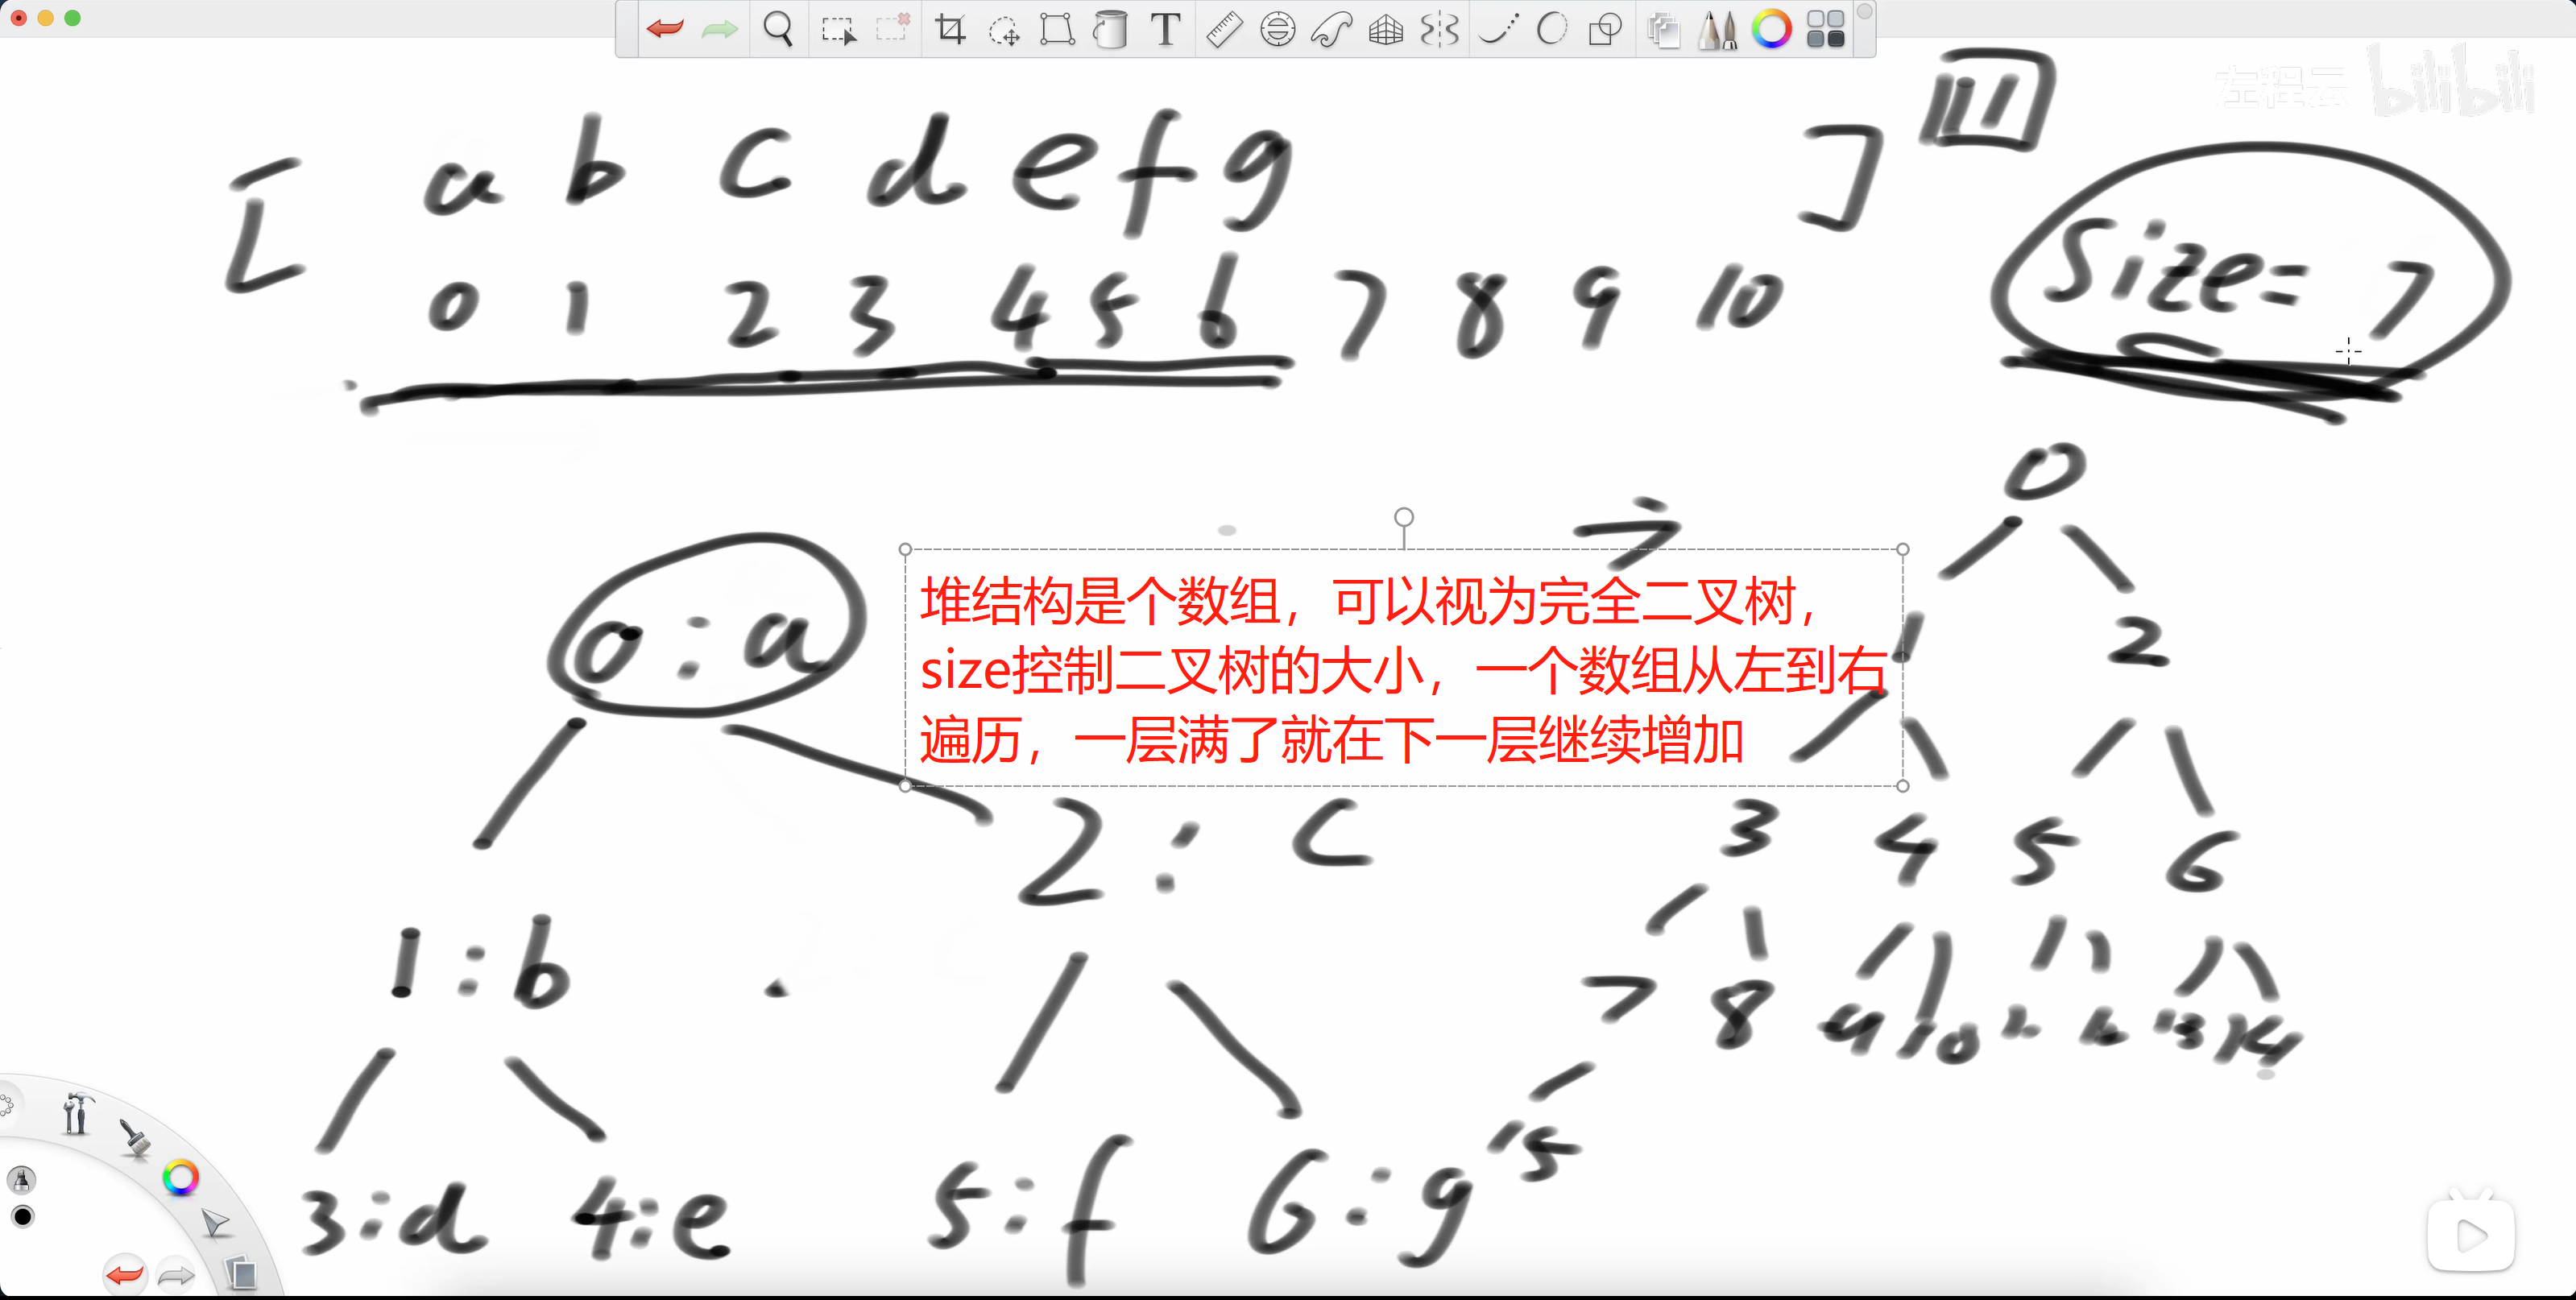 左程云 bilibili
[ a b c d e f g ]
0 1 2 3 4 5 6 7 8 9 10
size= 7
0
堆结构是个数组，可以视为完全二叉树，
size控制二叉树的大小，一个数组从左到右
遍历，一层满了就在下一层继续增加
0 : a
1 2
2 : c
3 4 5 6
1 : b
7 8 9 10 12 13 14
15
3 : d 4 : e 5 : f 6 : g